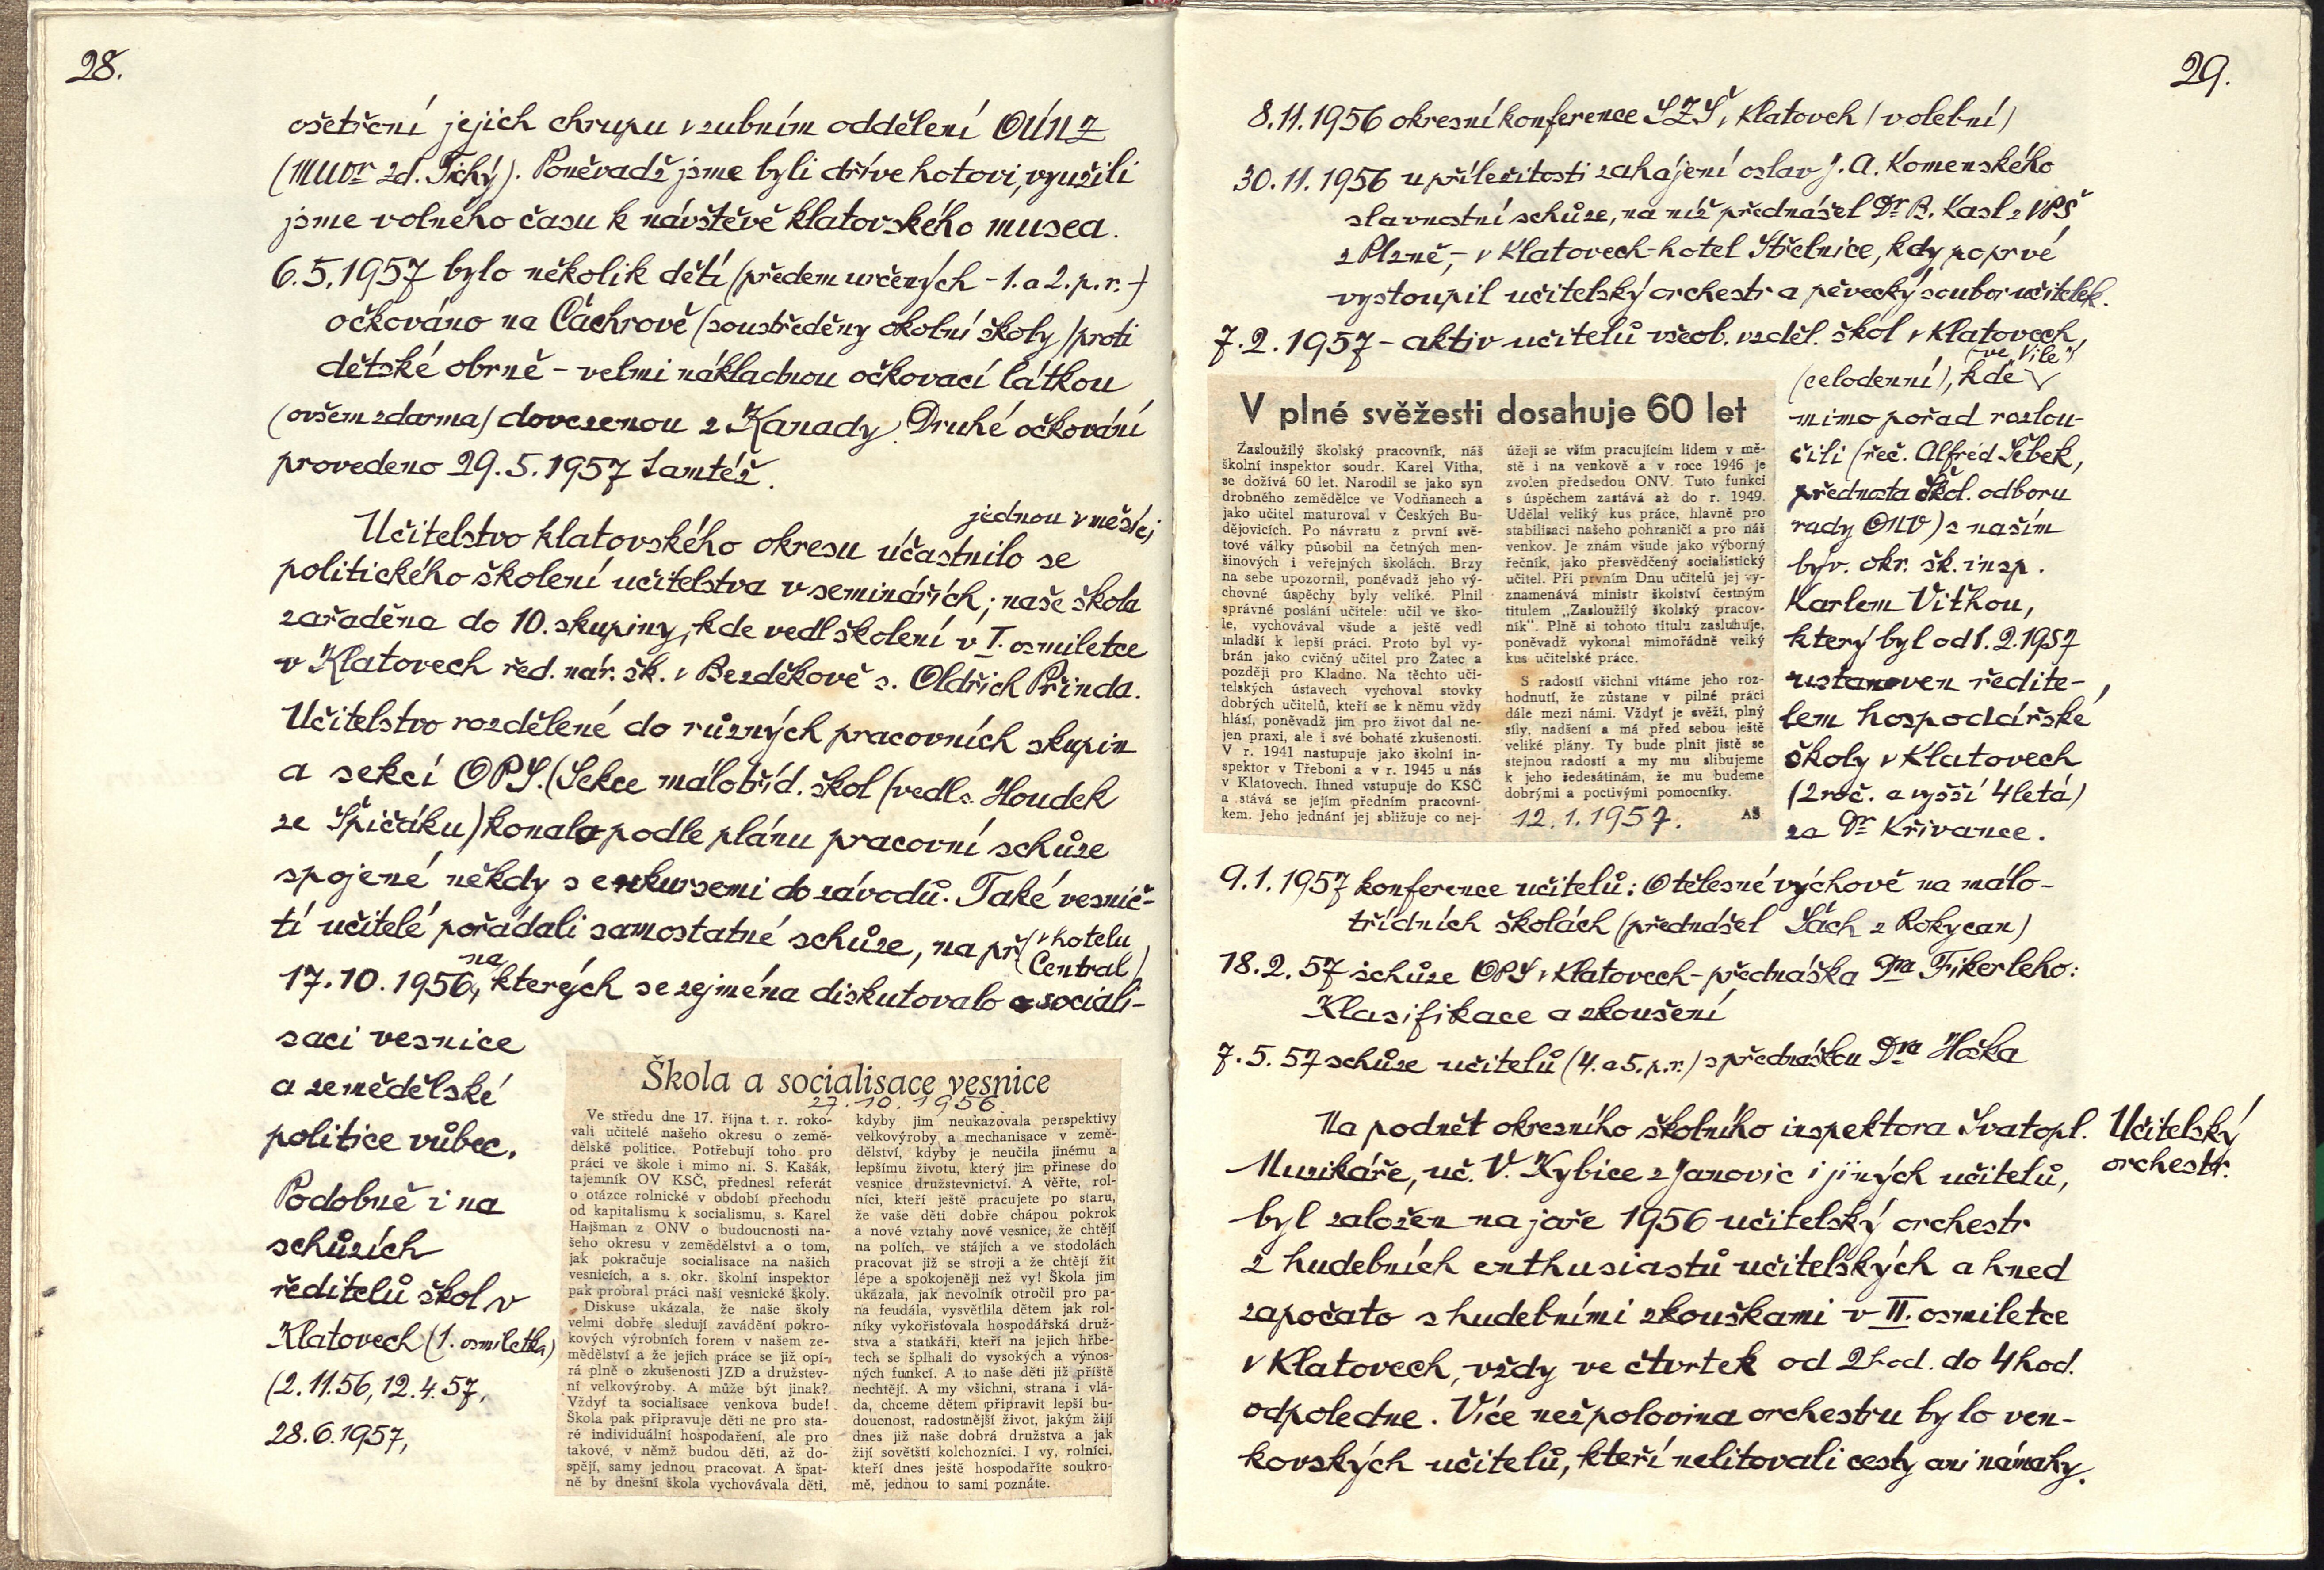 28.
ošetření jejich chrupu v zubním oddělení OÚNZ
(MUDr Zd. Tichý). Poněvadž jsme byli dříve hotovi, využili
jsme volného času k návštěvě klatovského musea.
6.5.1957 bylo několik dětí (předem určených - 1. a 2. p. r. -)
očkováno na Čáchrově (soustředěny okolní školy) proti
dětské obrně - velmi nákladnou očkovací látkou
(ovšem zdarma) dovezenou z Kanady. Druhé očkování
provedeno 29.5.1957 tamtéž.
jednou v měsíci
Učitelstvo klatovského okresu účastnilo se
politického školení učitelstva v seminářích; naše škola
zařaděna do 10. skupiny, kde vedl školení v I. osmiletce
v Klatovech řed. nár. šk. v Bezděkově s. Oldřich Přinda.
Učitelstvo rozdělené do různých pracovních skupin
a sekcí OPS. (Sekce málotříd. škol (vedl s. Houdek
ze Špičáku) konala podle plánu pracovní schůze
spojené někdy s exkursemi do závodů. Také vesnič-
tí učitelé pořádali samostatné schůze, na př. (v hotelu
Central)
17.10.1956, na kterých se zejména diskutovalo o sociali-
saci vesnice
a zemědělské
politice vůbec.
Podobně i na
schůzích
ředitelů škol v
Klatovech (1. osmiletka)
(2.11.56, 12.4.57,
28.6.1957,
Škola a socialisace vesnice
27.10.1956.
Ve středu dne 17. října t. r. roko-
vali učitelé našeho okresu o země-
dělské politice. Potřebují toho pro
práci ve škole i mimo ni. S. Kašák,
tajemník OV KSČ, přednesl referát
o otázce rolnické v období přechodu
od kapitalismu k socialismu, s. Karel
Hajšman z ONV o budoucnosti na-
šeho okresu v zemědělství a o tom,
jak pokračuje socialisace na našich
vesnicích, a s. okr. školní inspektor
pak probral práci naší vesnické školy.
Diskuse ukázala, že naše školy
velmi dobře sledují zavádění pokro-
kových výrobních forem v našem ze-
mědělství a že jejich práce se již opí-
rá plně o zkušenosti JZD a družstev-
ní velkovýroby. A může být jinak?
Vždyť ta socialisace venkova bude!
Škola pak připravuje děti ne pro sta-
ré individuální hospodaření, ale pro
takové, v němž budou děti, až do-
spějí, samy jednou pracovat. A špat-
ně by dnešní škola vychovávala děti,
kdyby jim neukazovala perspektivy
velkovýroby a mechanisace v země-
dělství, kdyby je neučila jinému a
lepšímu životu, který jim přinese do
vesnice družstevnictví. A věřte, rol-
níci, kteří ještě pracujete po staru,
že vaše děti dobře chápou pokrok
a nové vztahy nové vesnice, že chtějí
na polích, ve stájích a ve stodolách
pracovat již se stroji a že chtějí žít
lépe a spokojeněji než vy! Škola jim
ukázala, jak nevolník otročil pro pa-
na feudála, vysvětlila dětem jak rol-
níky vykořisťovala hospodářská druž-
stva a statkáři, kteří na jejich hřbe-
tech se šplhali do vysokých a výnos-
ných funkcí. A to naše děti již příště
nechtějí. A my všichni, strana i vlá-
da, chceme dětem připravit lepší bu-
doucnost, radostnější život, jakým žijí
dnes již naše dobrá družstva a jak
žijí sovětští kolchozníci. I vy, rolníci,
kteří dnes ještě hospodaříte soukro-
mě, jednou to sami poznáte.
29.
8.11.1956 okresní konference SZŠ v Klatovech (volební)
30.11.1956 u příležitosti zahájení oslav J. A. Komenského
slavnostní schůze, na níž přednášel Dr B. Kasl z VPŠ
z Plzně, - v Klatovech - hotel Střelnice, kdy poprvé
vystoupil učitelský orchestr a pěvecký soubor učitelek.
7.2.1957 - aktiv učitelů všeob. vzděl. škol v Klatovech,
(ve "Vile")
(celodenní), kde
mimo pořad rozlou-
čili (řeč. Alfréd Šebek,
přednosta škol. odboru
rady ONV) s naším
býv. okr. šk. insp.
Karlem Viťhou,
který byl od 1.2.1957
ustanoven ředite-
lem hospodářské
školy v Klatovech
(2 roč. a vyšší 4letá)
za Dr Křivance.
V plné svěžesti dosahuje 60 let
Zasloužilý školský pracovník, náš
školní inspektor soudr. Karel Vitha,
se dožívá 60 let. Narodil se jako syn
drobného zemědělce ve Vodňanech a
jako učitel maturoval v Českých Bu-
dějovicích. Po návratu z první svě-
tové války působil na četných men-
šinových i veřejných školách. Brzy
na sebe upozornil, poněvadž jeho vý-
chovné úspěchy byly veliké. Plnil
správné poslání učitele: učil ve ško-
le, vychovával všude a ještě vedl
mladší k lepší práci. Proto byl vy-
brán jako cvičný učitel pro Žatec a
později pro Kladno. Na těchto uči-
telských ústavech vychoval stovky
dobrých učitelů, kteří se k němu vždy
hlásí, poněvadž jim pro život dal ne-
jen praxi, ale i své bohaté zkušenosti.
V r. 1941 nastupuje jako školní in-
spektor v Třeboni a v r. 1945 u nás
v Klatovech. Ihned vstupuje do KSČ
a stává se jejím předním pracovní-
kem. Jeho jednání jej sbližuje co nej-
úžeji se vším pracujícím lidem v mě-
stě i na venkově a v roce 1946 je
zvolen předsedou ONV. Tuto funkci
s úspěchem zastává až do r. 1949.
Udělal veliký kus práce, hlavně pro
stabilisaci našeho pohraničí a pro náš
venkov. Je znám všude jako výborný
řečník, jako přesvědčený socialistický
učitel. Při prvním Dnu učitelů jej vy-
znamenává ministr školství čestným
titulem „Zasloužilý školský pracov-
ník“. Plně si tohoto titulu zasluhuje,
poněvadž vykonal mimořádně velký
kus učitelské práce.
S radostí všichni vítáme jeho roz-
hodnutí, že zůstane v pilné práci
dále mezi námi. Vždyť je svěží, plný
síly, nadšení a má před sebou ještě
veliké plány. Ty bude plnit jistě se
stejnou radostí a my mu slibujeme
k jeho šedesátinám, že mu budeme
dobrými a poctivými pomocníky.
12.1.1957. AŠ
9.1.1957 konference učitelů: O tělesné výchově na málo-
třídních školách (přednášel Šách z Rokycan)
18.2.57 schůze OPS v Klatovech - přednáška Dra Fikerleho:
Klasifikace a zkoušení
7.5.57 schůze učitelů (4. a 5. p. r.) s přednáškou Dra Hoška
Na podnět okresního školního inspektora Svatopl.
Muzikáře, uč. V. Kybice z Janovic i jiných učitelů,
byl založen na jaře 1956 učitelský orchestr
z hudebních enthusiastů učitelských a hned
započato s hudebními zkouškami v II. osmiletce
v Klatovech, vždy ve čtvrtek od 2 hod. do 4 hod.
odpoledne. Více než polovina orchestru bylo ven-
kovských učitelů, kteří nelitovali cesty ani námahy.
Učitelský
orchestr.